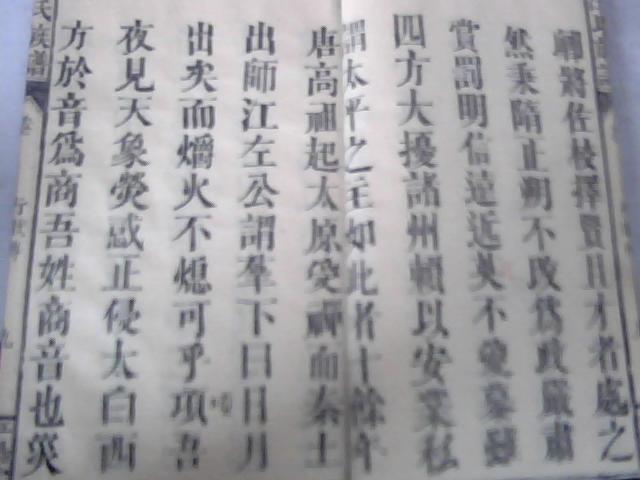 辟將佐校擇賢且才者處之
然秉隋正朔不改爲政嚴肅
賞罰明信遠近莫不愛慕雖
四方大擾諸州賴以安業私
謂太平之主如此者十餘年
唐高祖起太原受禪而秦王
出師江左公謂羣下曰日月
出矣而爝火不熄可乎項吾
夜見天象熒惑正侵太白西
方於音爲商吾姓商音也災
氏族譜